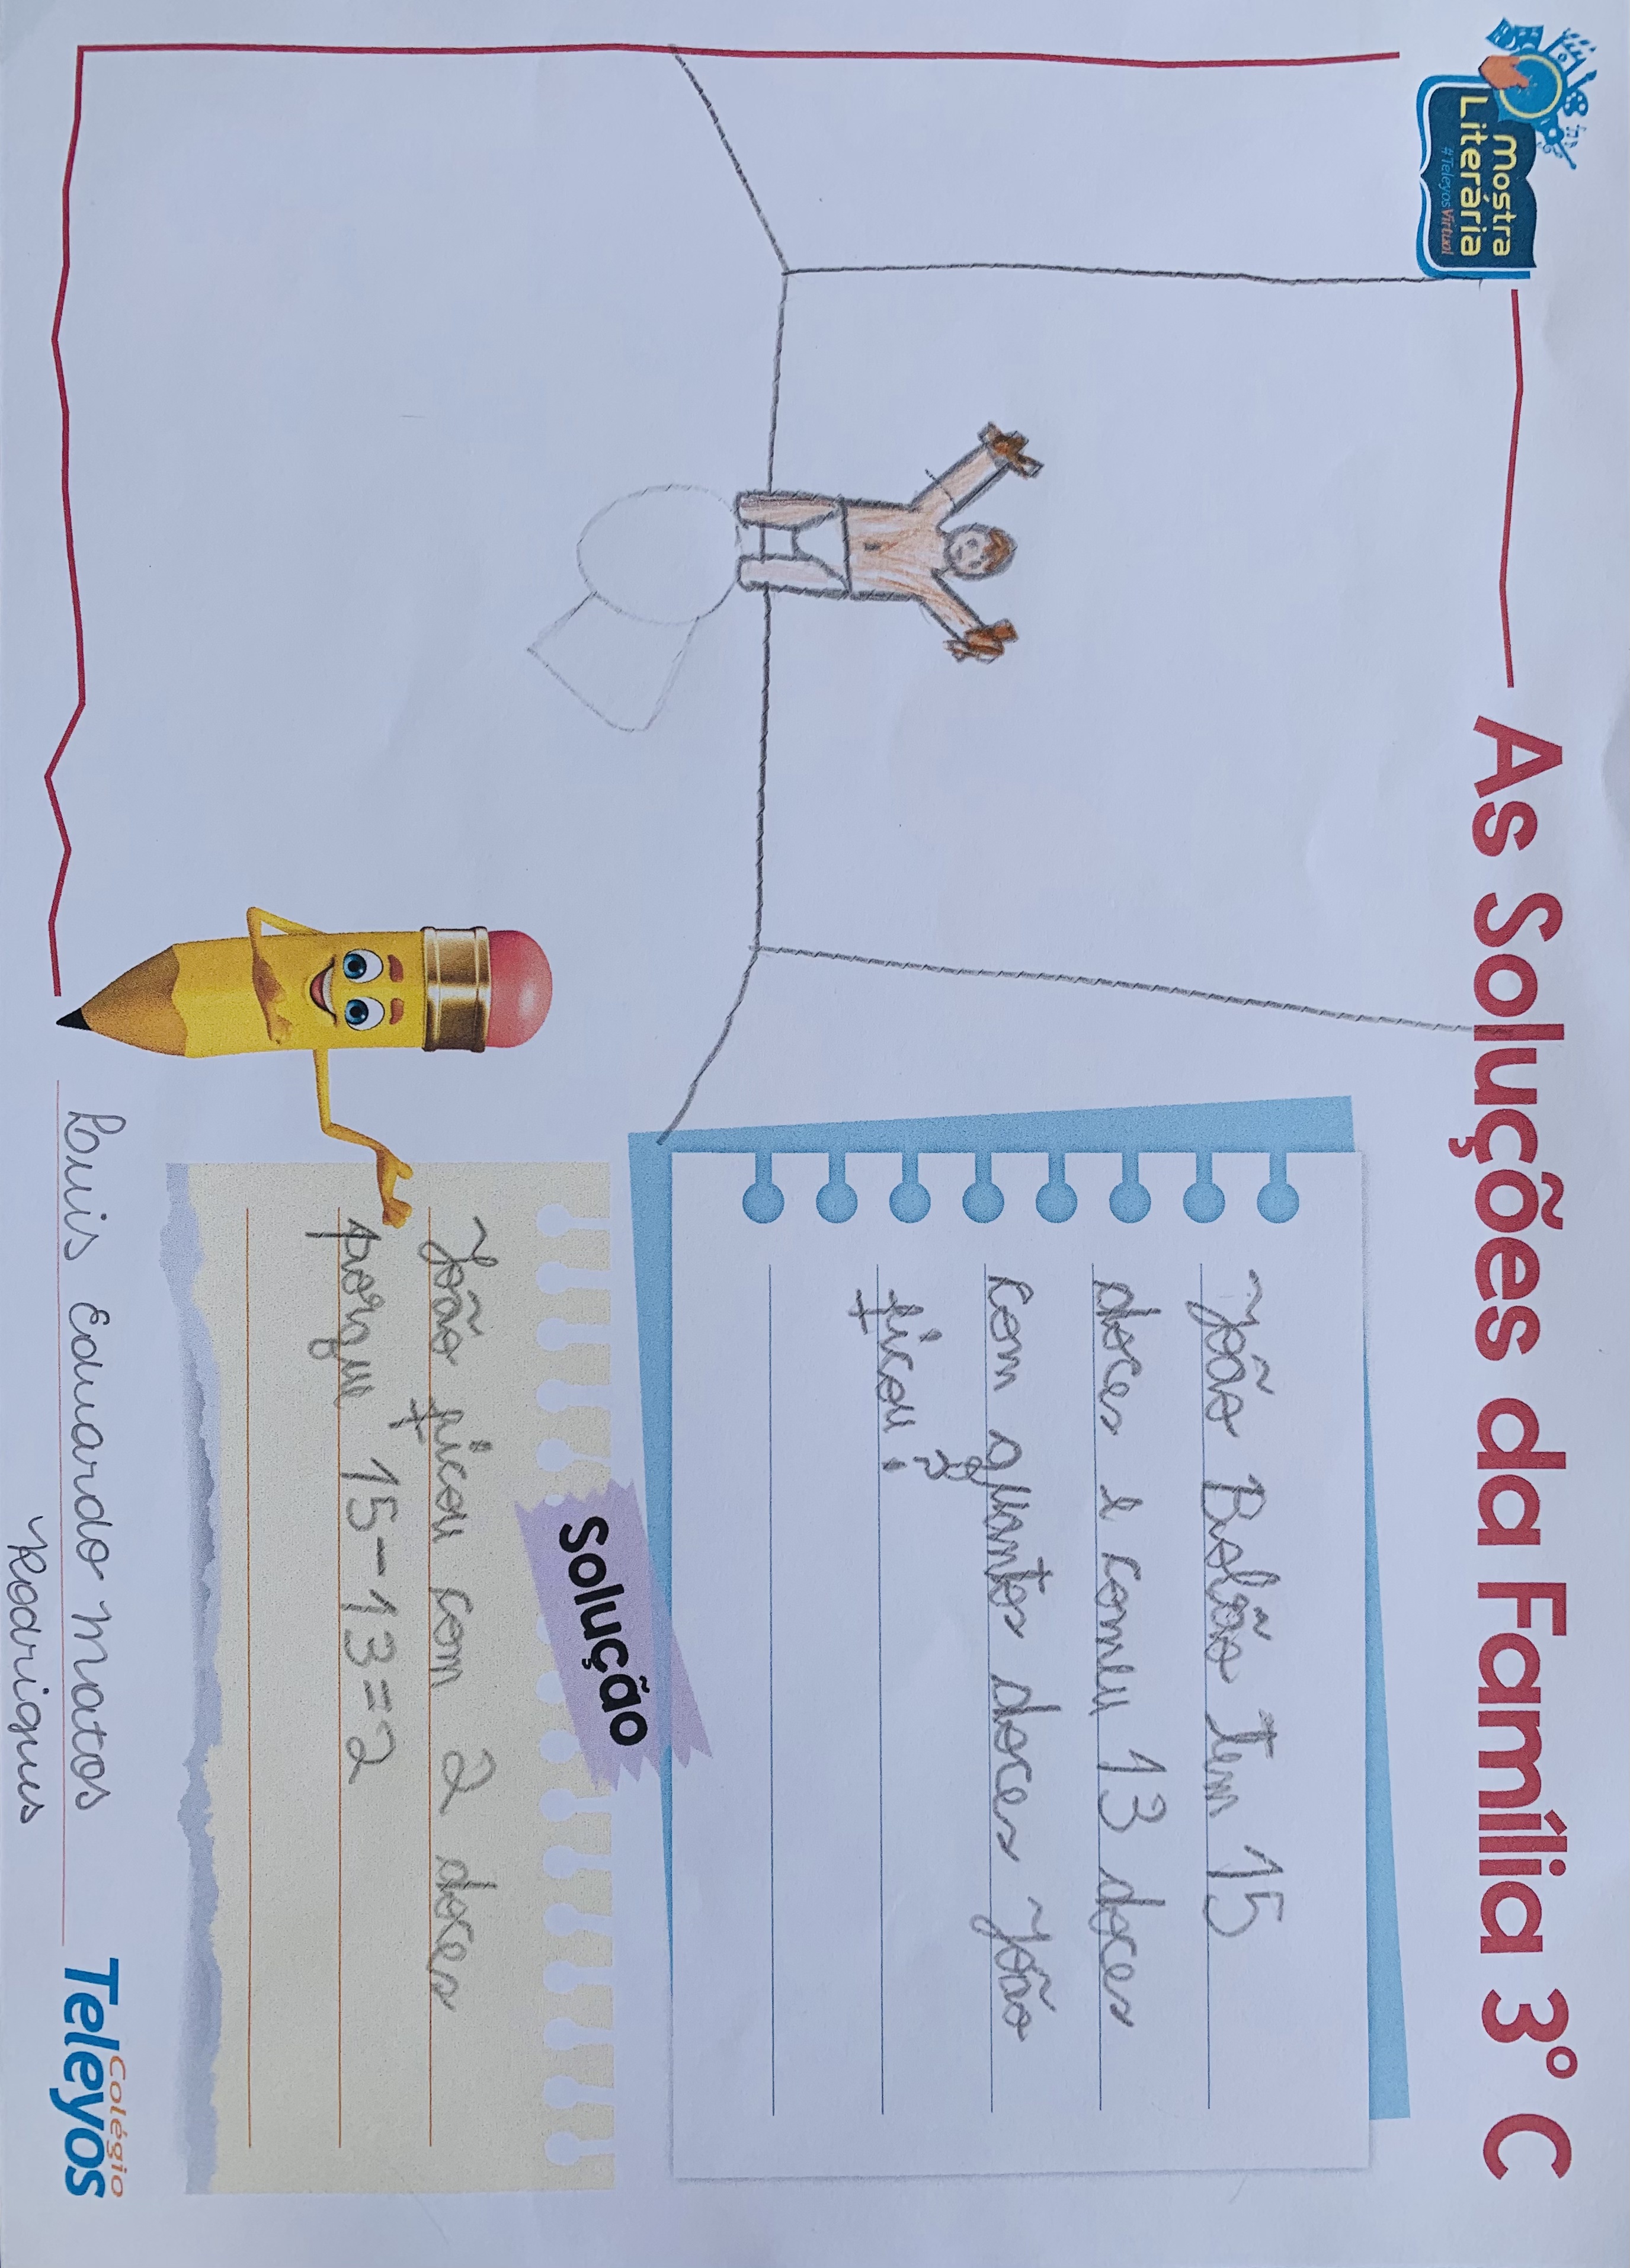 Mostra
Literária
#TeleyosVirtual
As Soluções da Família 3° C
João Bolão Tem 15
doces e comeu 13 doces
com quantos doces João
ficou?
Solução
João ficou com 2 doces
porque 15-13=2
Luis Eduardo Matos
Rodrigues
Colégio
Teleyos